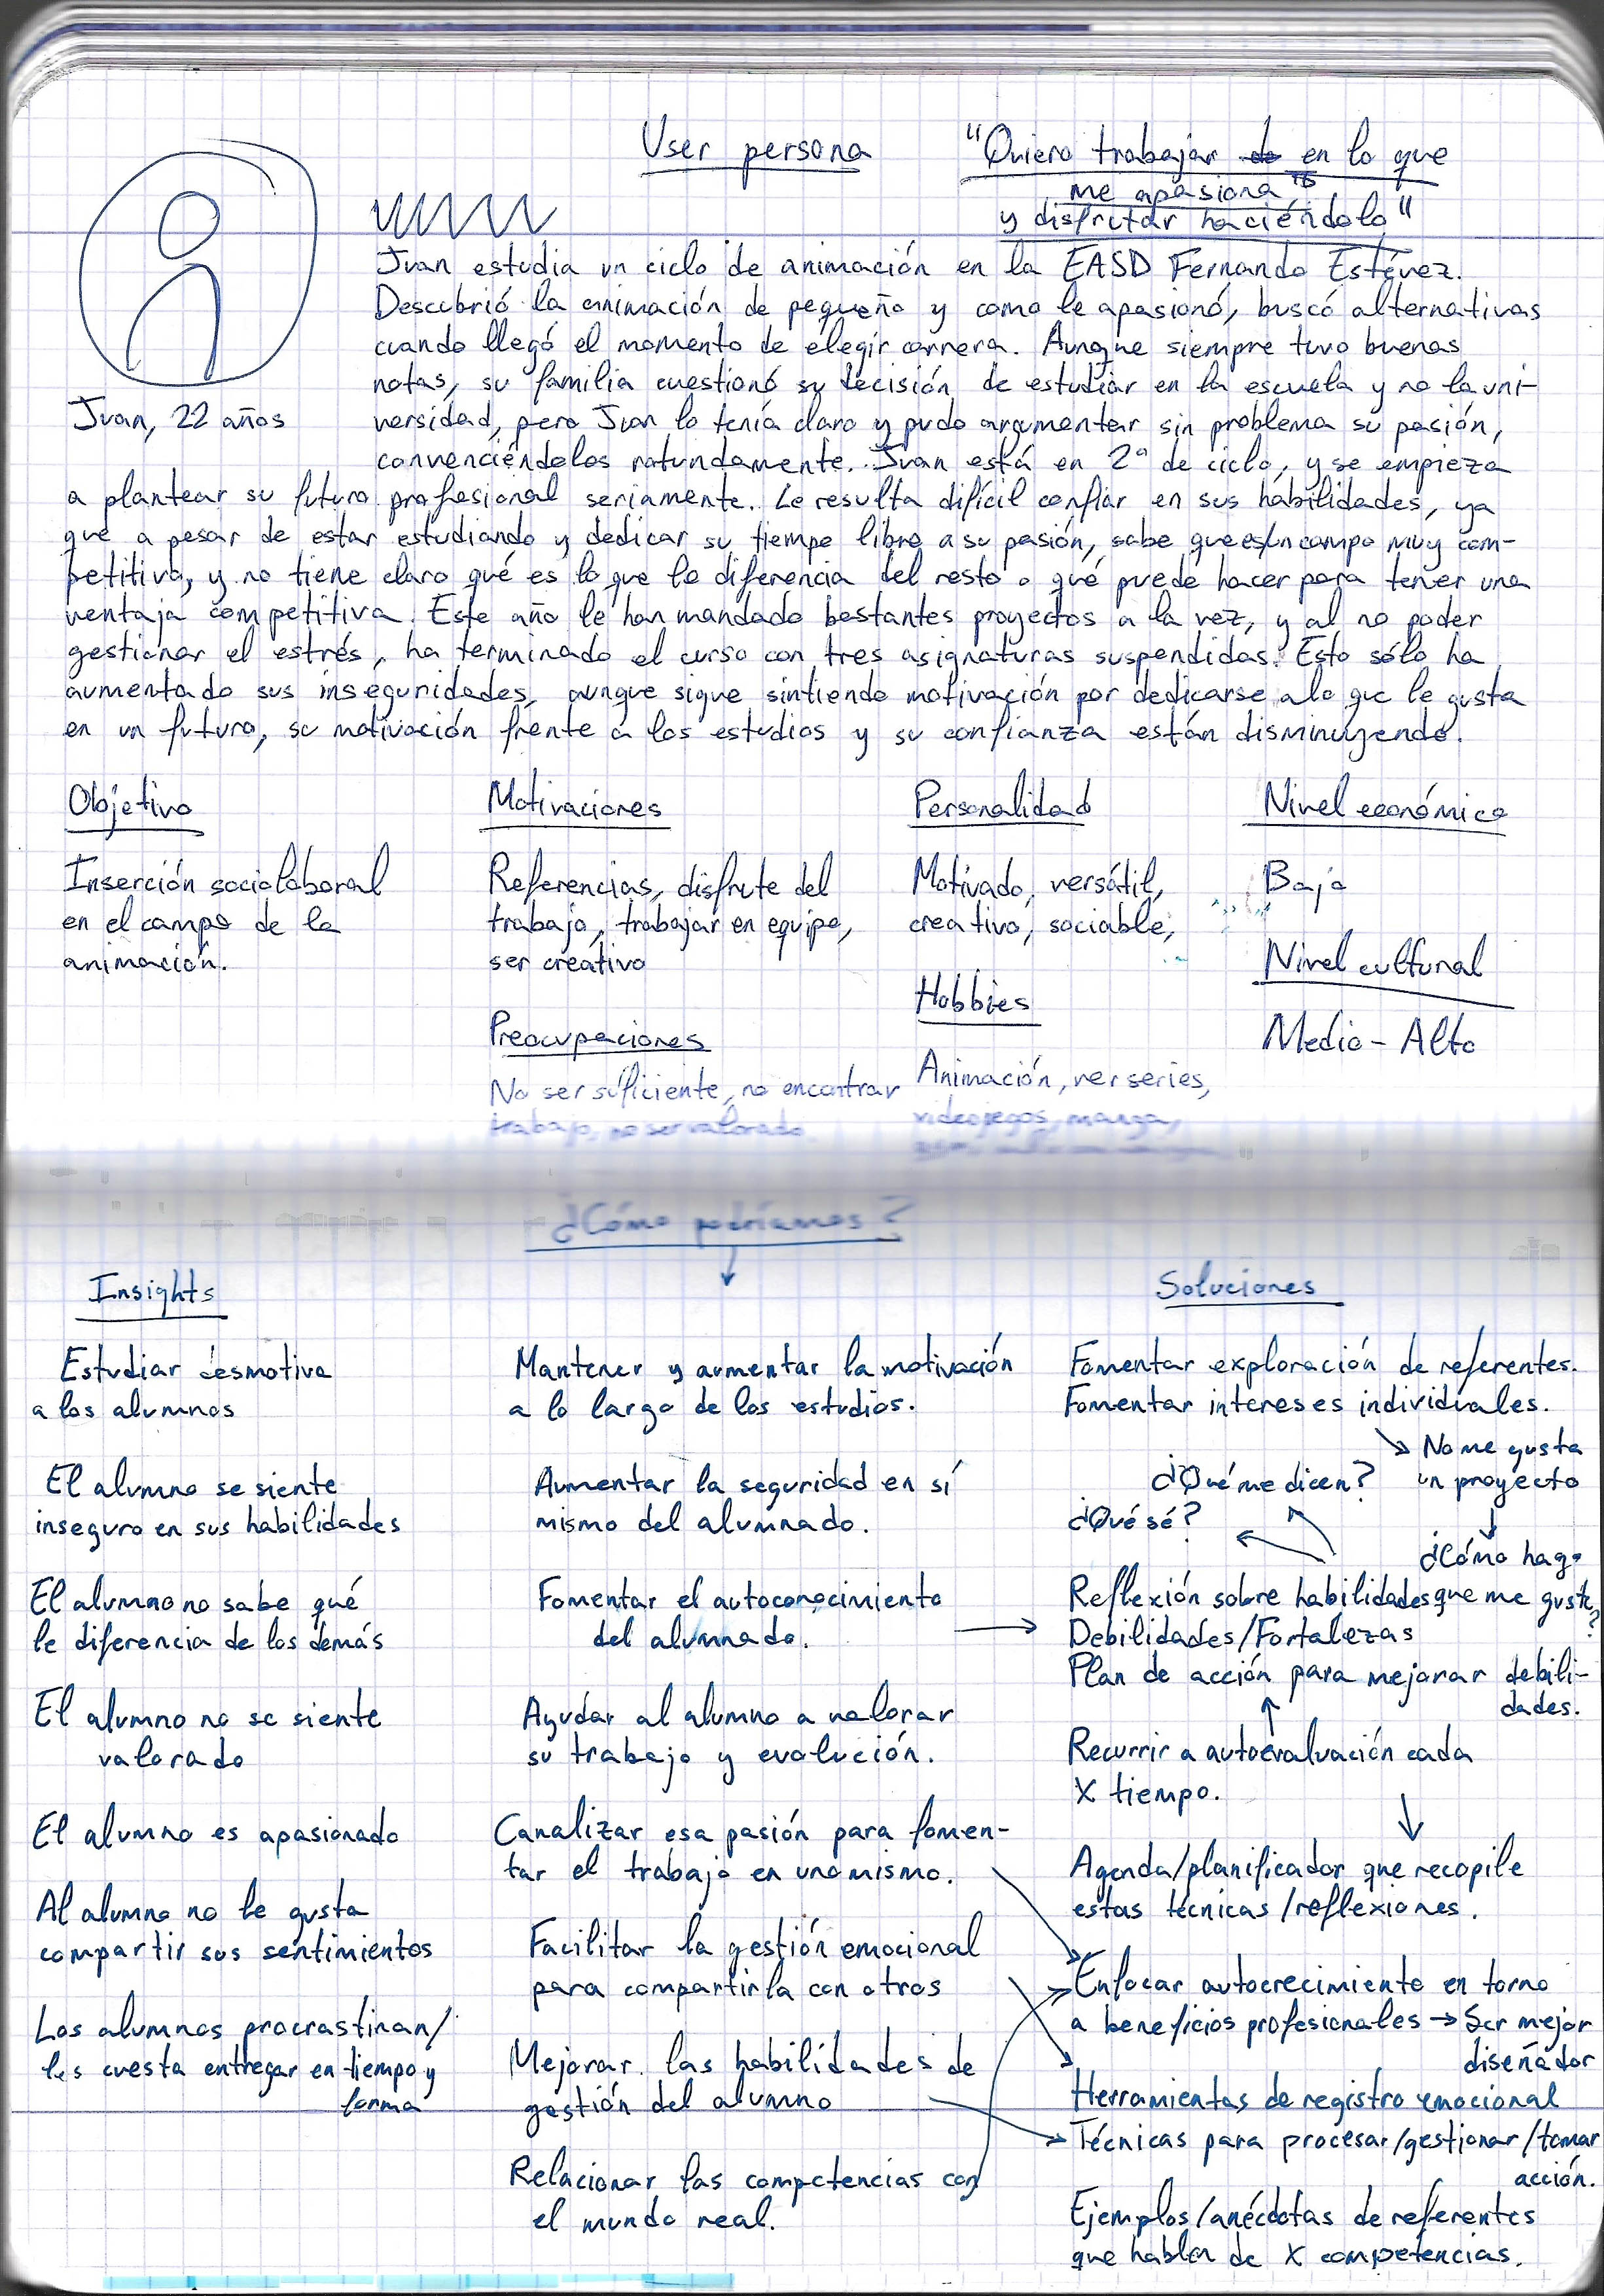 User persona
"Quiero trabajar de en lo que
me apasiona
y disfrutar haciéndolo"
Juan, 22 años
Juan estudia un ciclo de animación en la EASD Fernando Estévez.
Descubrió la animación de pequeño y como le apasionó, buscó alternativas
cuando llegó el momento de elegir carrera. Aunque siempre tuvo buenas
notas, su familia cuestionó su decisión de estudiar en la escuela y no la uni-
versidad, pero Juan lo tenía claro y pudo argumentar sin problema su pasión,
convenciéndolos rotundamente. Juan está en 2º de ciclo, y se empieza
a plantear su futuro profesional seriamente. Le resulta difícil confiar en sus habilidades, ya
que a pesar de estar estudiando y dedicar su tiempo libre a su pasión, sabe que es un campo muy com-
petitivo, y no tiene claro qué es lo que lo diferencia del resto o qué puede hacer para tener una
ventaja competitiva. Este año le han mandado bastantes proyectos a la vez, y al no poder
gestionar el estrés, ha terminado el curso con tres asignaturas suspendidas. Esto sólo ha
aumentado sus inseguridades, aunque sigue sintiendo motivación por dedicarse a lo que le gusta
en un futuro, su motivación frente a los estudios y su confianza están disminuyendo.
Objetivo
Inserción sociolaboral
en el campo de la
animación.
Motivaciones
Referencias, disfrute del
trabajo, trabajar en equipo,
ser creativo
Preocupaciones
No ser suficiente, no encontrar
trabajo, no ser valorado
Personalidad
Motivado, versátil,
creativo, sociable,
Hobbies
Animación, ver series,
videojegos, manga,
Nivel económico
Bajo
Nivel cultural
Medio - Alto
¿Cómo podríamos?
Insights
Estudiar desmotiva
a los alumnos
El alumno se siente
inseguro en sus habilidades
El alumno no sabe qué
le diferencia de los demás
El alumno no se siente
valorado
El alumno es apasionado
Al alumno no le gusta
compartir sus sentimientos
Los alumnos procrastinan/
les cuesta entregar en tiempo y
forma
Mantener y aumentar la motivación
a lo largo de los estudios.
Aumentar la seguridad en sí
mismo del alumnado.
Fomentar el autoconocimiento
del alumnado.
Ayudar al alumno a valorar
su trabajo y evolución.
Canalizar esa pasión para fomen-
tar el trabajo en uno mismo.
Facilitar la gestión emocional
para compartirla con otros
Mejorar las habilidades de
gestión del alumno
Relacionar las competencias con
el mundo real.
Soluciones
Fomentar exploración de referentes.
Fomentar intereses individuales.
No me gusta
un proyecto
¿Cómo hago
que me guste?
¿Qué me dicen?
¿Qué sé?
Reflexión sobre habilidades
Debilidades/Fortalezas
Plan de acción para mejorar debili-
dades.
Recurrir a autoevaluación cada
X tiempo.
Agenda/planificador que recopile
estas técnicas/reflexiones.
Enfocar autocrecimiento en torno
a beneficios profesionales → Ser mejor
diseñador
Herramientas de registro emocional
Técnicas para procesar/gestionar/tomar
acción.
Ejemplos/anécdotas de referentes
que hablen de X competencias.